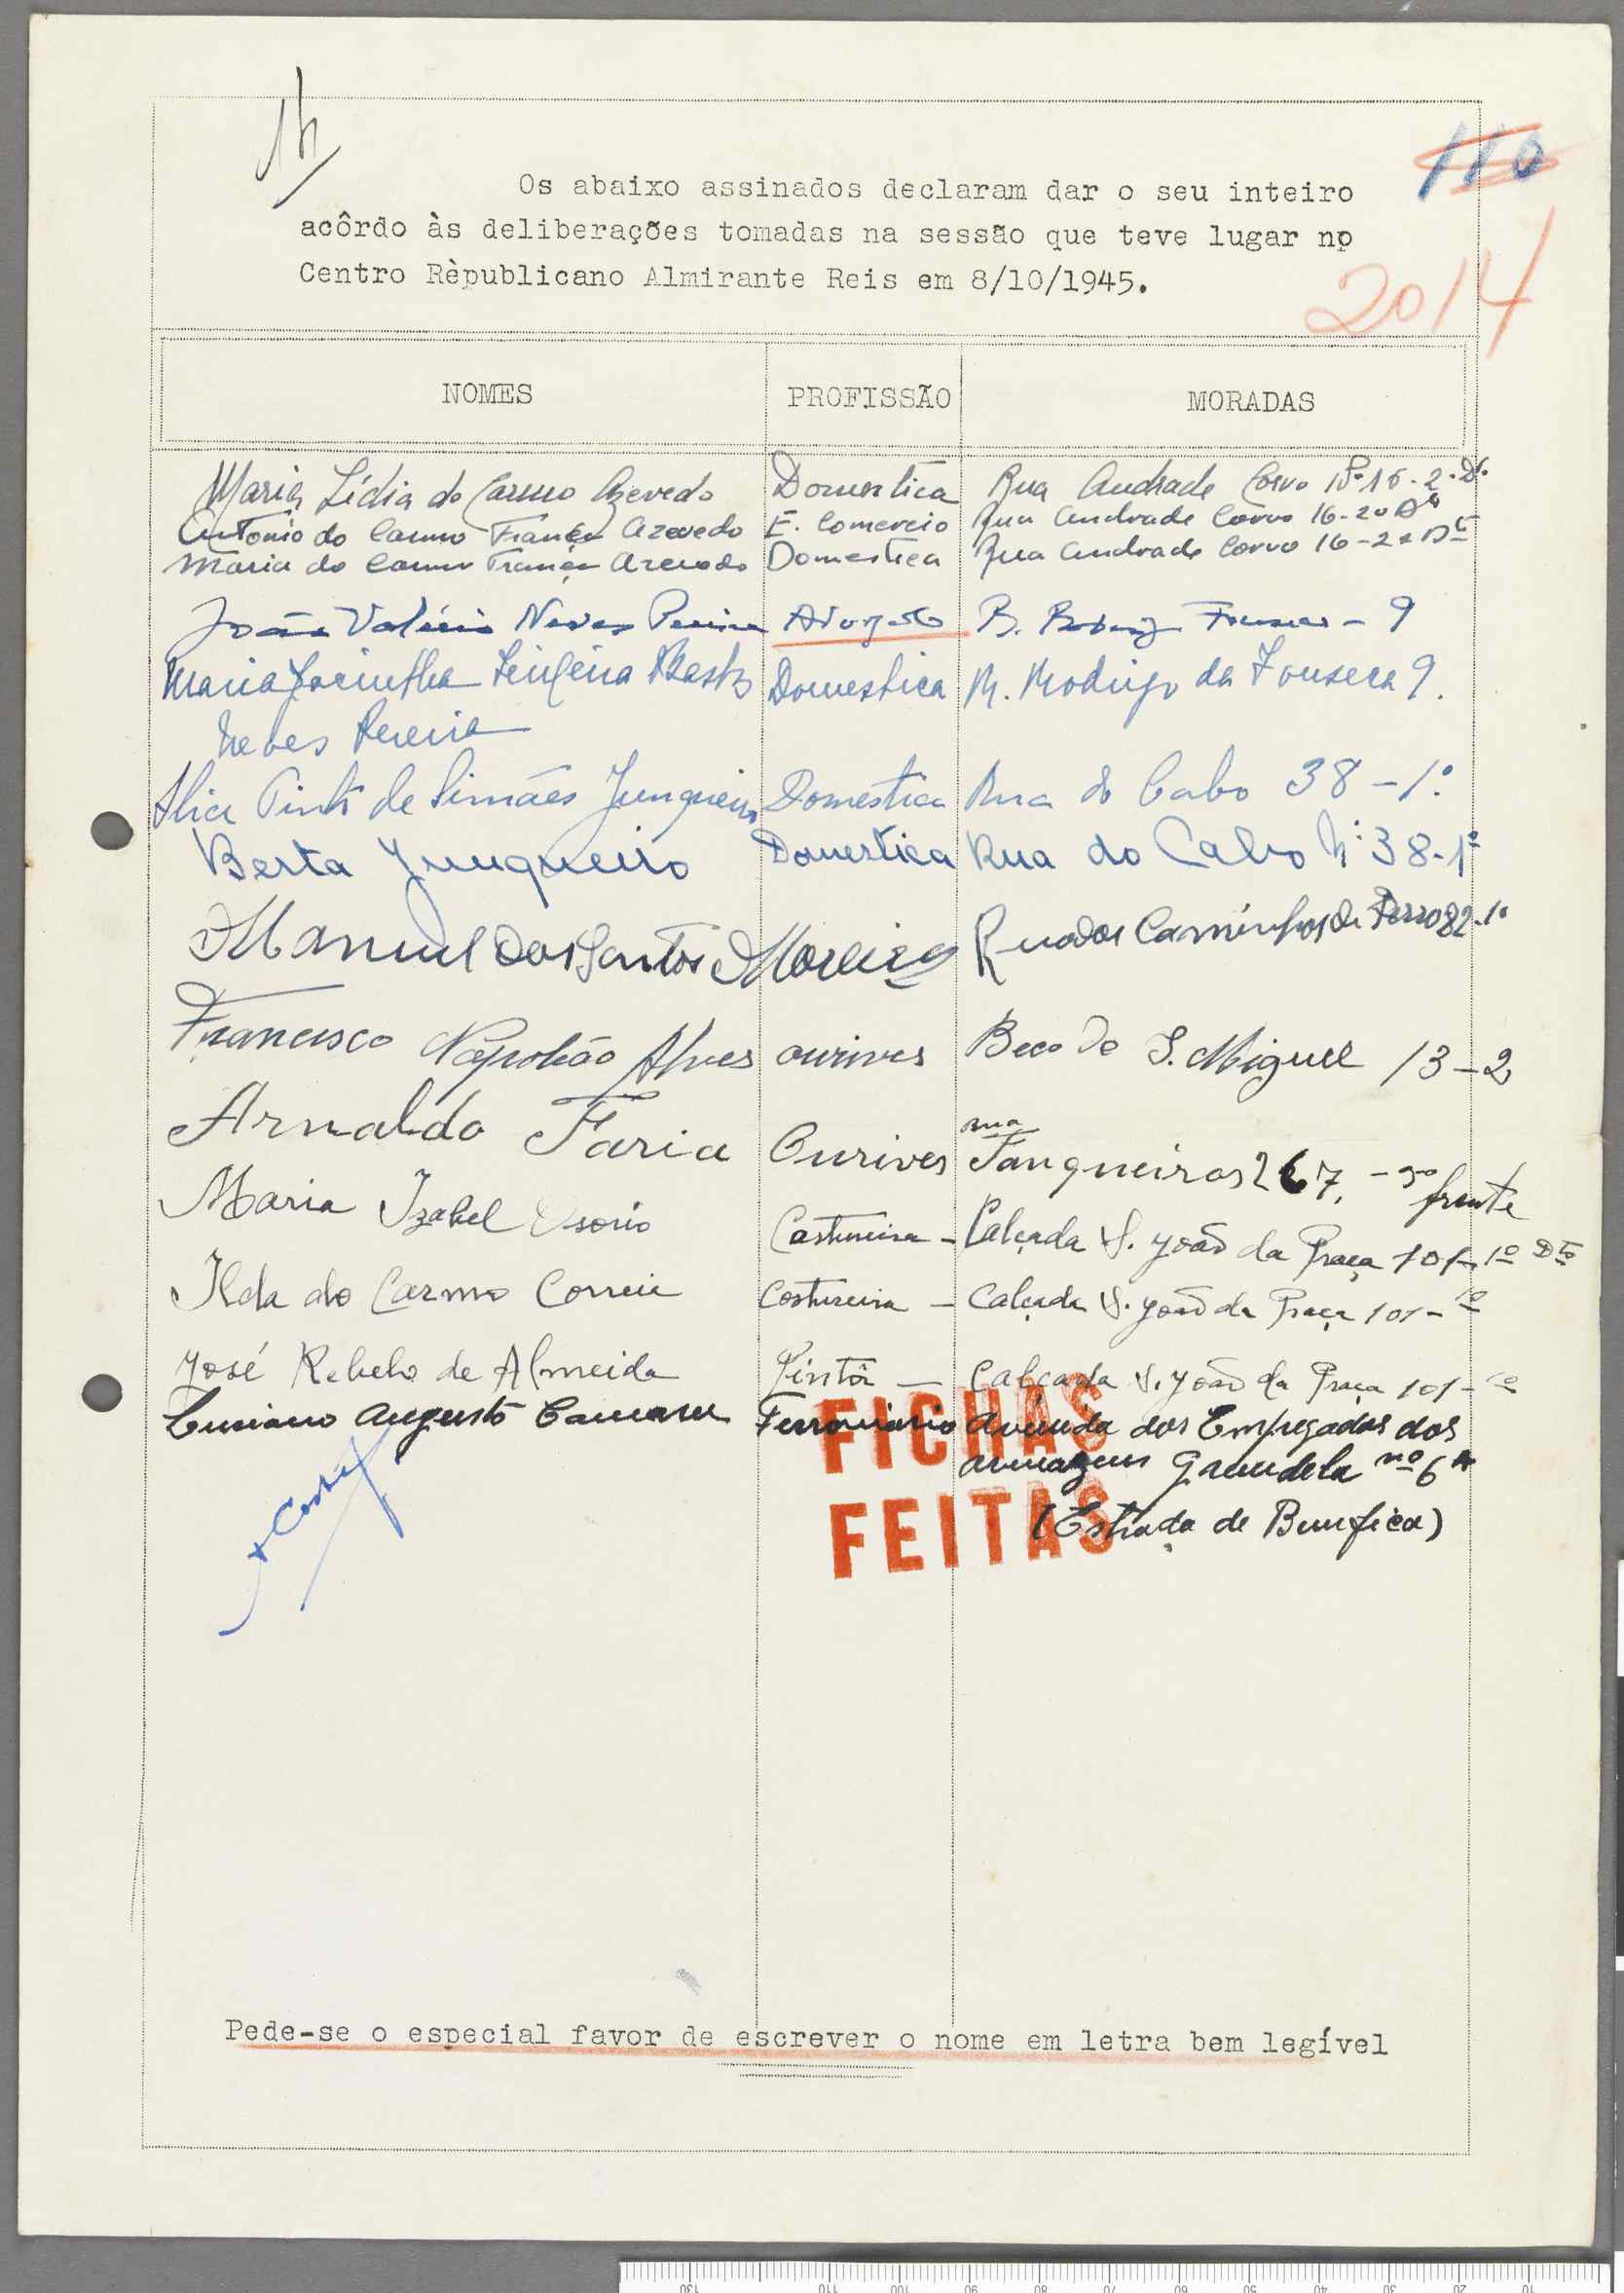 14
110
Os abaixo assinados declaram dar o seu inteiro
acôrdo às deliberações tomadas na sessão que teve lugar no
Centro Rèpublicano Almirante Reis em 8/10/1945.
2014
NOMES PROFISSÃO MORADAS
Maria Lídia do Carmo Azevedo Domestica Rua Andrade Corvo Nº 16-2-Dto
Antonio do Carmo França Azevedo E. Comercio Rua Andrade Corvo 16-2º Dto
Maria do Carmo França Azevedo Domestica Rua Andrade Corvo 16-2º Dto
João Valério Neves Pereira Advogado R. Rodrigo Fonseca - 9
Maria Jacintha Basto Domestica R. Rodrigo da Fonseca 9.
Neves Pereira
Alice Pinto de Simães Junqueiro Domestica Rua do Cabo 38-1º
Berta Junqueiro Domestica Rua do Cabo Nº 38-1º
Manuel dos Santos Moreira Rua dos Caminhos de Ferro 82-1º
Francisco Napoleão Alves ourives Beco de S. Miguel 13-2
Arnaldo Faria Ourives rua Fanqueiros 267, frente
Maria Izabel Osorio Costureira - Calçada S. João da Praça 101-1º Dto
Ilda do Carmo Correia Costureira - Calçada S. João da Praça 101-1º
José Rebelo de Almeida Pintôr - Calçada S. João da Praça 101-1º
Luciano Augusto Camara Ferroviario Avenida dos Empregados dos
armazens Grandela nº 6 A
(Estrada de Bemfica)
FICHAS
FEITAS
Pede-se o especial favor de escrever o nome em letra bem legível